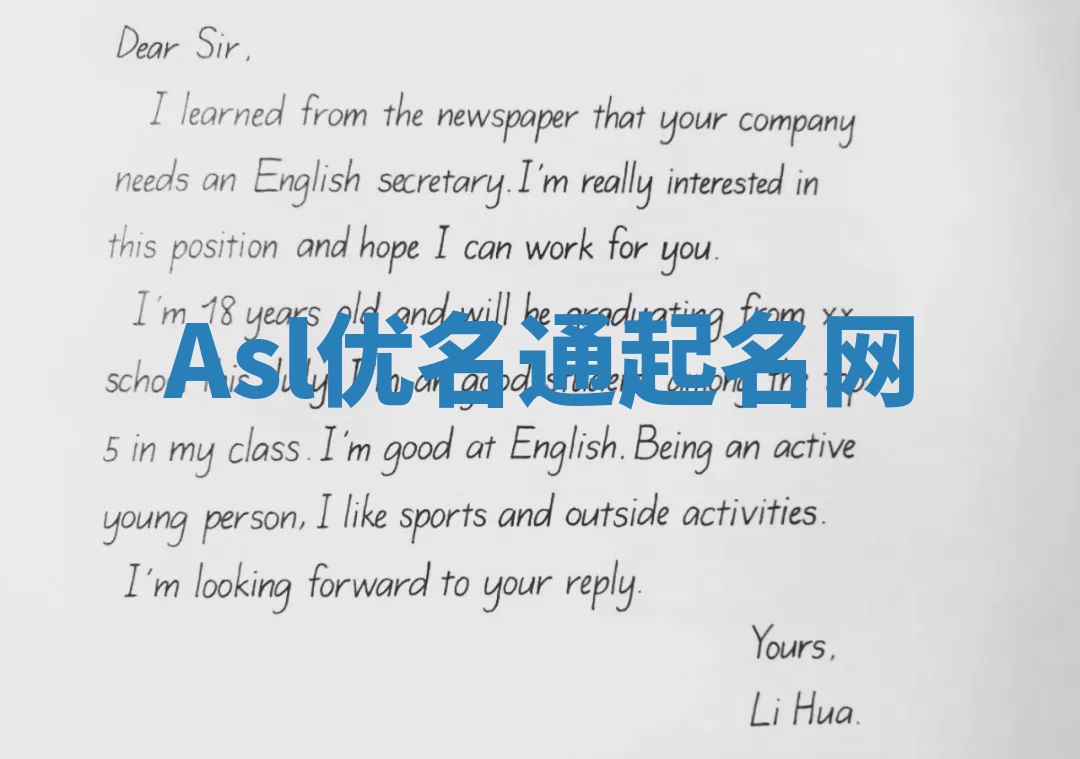 Dear Sir,
I learned from the newspaper that your company
needs an English secretary. I'm really interested in
this position and hope I can work for you.
I'm 18 years old and will be graduating from xx
Asl优名通起名网
school this July. I'm a good student among the top
5 in my class. I'm good at English. Being an active
young person, I like sports and outside activities.
I'm looking forward to your reply.
Yours,
Li Hua.